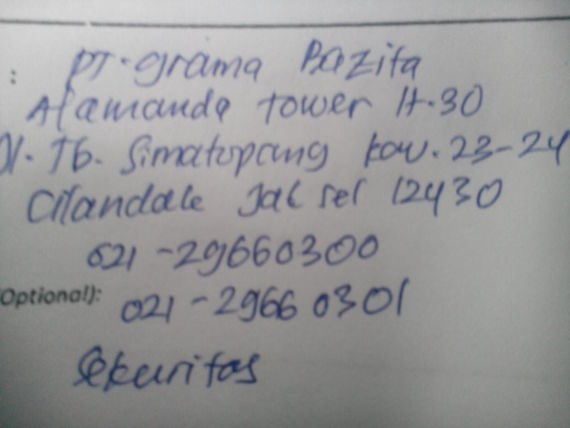 : PT. grama Bazita
Alamanda tower lt. 30
Jl. TB. Simatupang kav. 23-24
Cilandak Jak sel 12430
021 - 29660300
(Optional): 021 - 2966 0301
Sekuritas